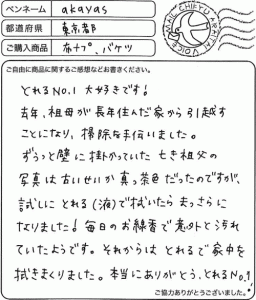 ペンネーム akayas
都道府県 東京都
ご購入商品 布ナプ、バケツ
MAIL CHIEKURABE VOICE
ご自由に商品に関するご感想などお書きください。
とれるNo.1 大好きです!
去年、祖母が長年住んだ家から引越す
ことになり、掃除を手伝いました。
ずうっと壁に掛かっていた亡き祖父の
写真は古いせいか真っ茶色だったのですが、
試しにとれる(液)で拭いたらまっさらに
なりました!毎日のお線香で意外と汚れ
ていたようです。それからはとれるで家中を
拭きまくりました。本当にありがとう、とれるNo.1!
ご協力ありがとうございました。